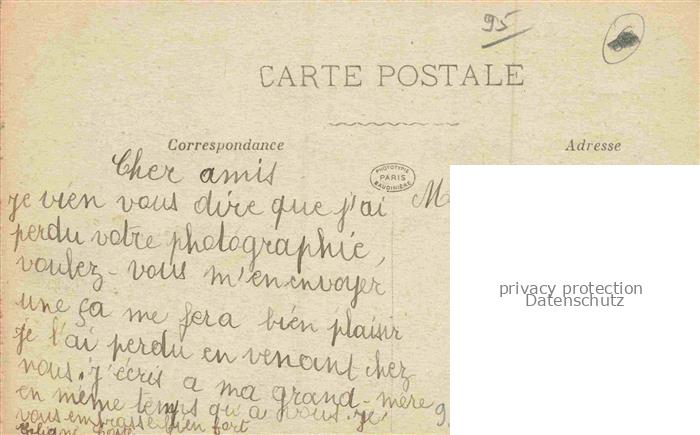 95
CARTE POSTALE
Correspondance
Adresse
PHOTOTYPIE
PARIS
BAUDINIÈRE
Cher amis
je vien vous dire que j'ai
perdu votre photographie,
voulez-vous m'en envoyer
une ça me fera bien plaisir
je l'ai perdu en venant chez
nous. j'écris a ma grand-mère
en même temps qu'a vous. je
vous embrasse bien fort
M
9
privacy protection
Datenschutz